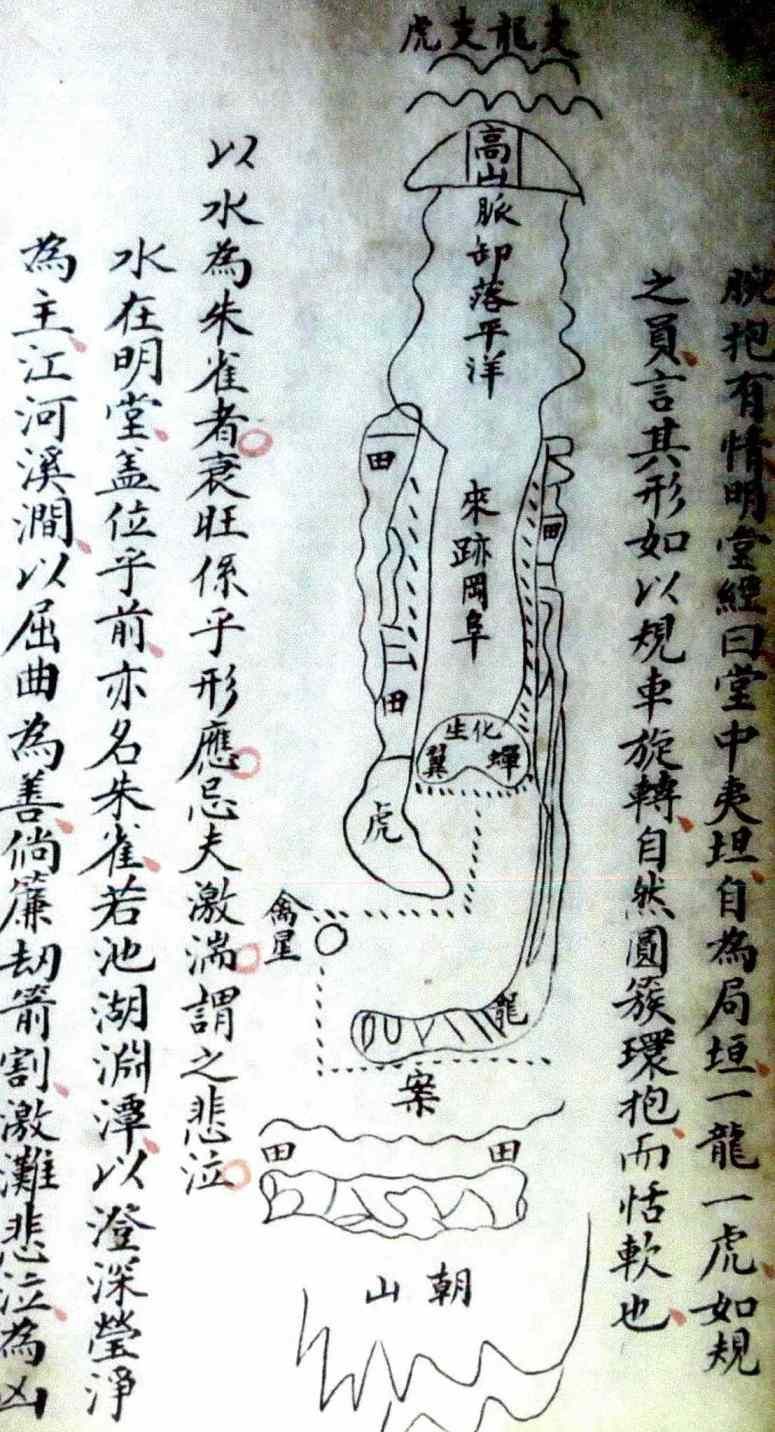 腕抱有情明堂經曰堂中夷坦自為局垣一龍一虎如規
之員言其形如以規車旋轉自然圓簇環抱而恬軟也
虎支龍支
高山
脈卸落平洋
來跡岡阜
田
田
二田
生化
翼
蟬
虎
禽星
龍
案
田
田
山朝
以水為朱雀者衰旺係乎形應忌夫激湍謂之悲泣
水在明堂盖位乎前亦名朱雀若池湖淵潭以澄深瑩淨
為主江河溪澗以屈曲為善倘簾劫箭割激灘悲泣為凶